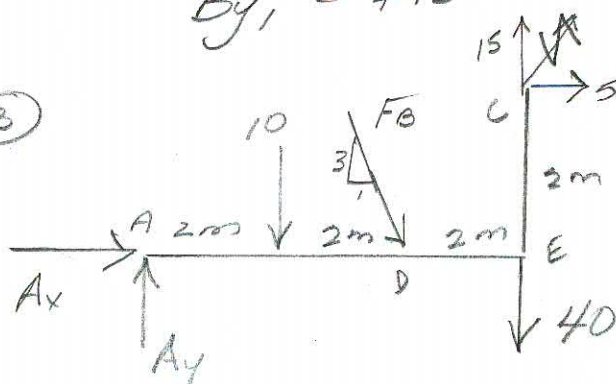 By,
3
15
5
C
10
FB
3
1
2m
A 2m 2m 2m E
D
Ax
Ay
40